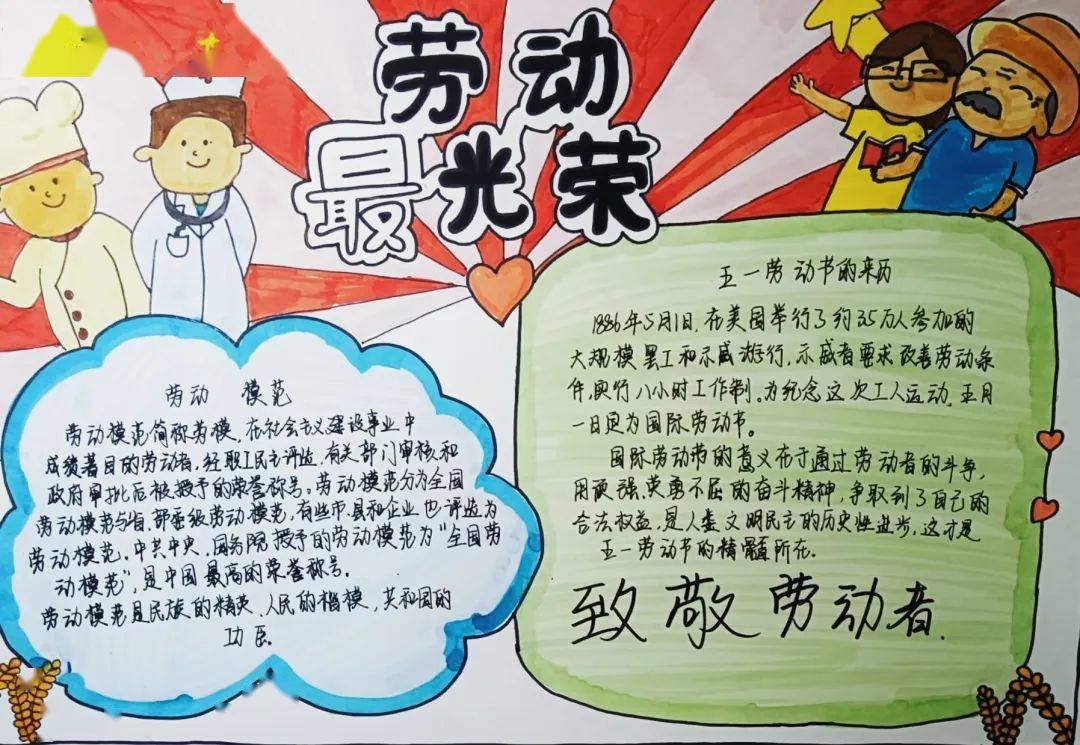 劳动
最光荣
劳动 模范
劳动模范简称劳模，在社会主义建设事业中
成绩著目的劳动者，经职工民主评选，有关部门审核和
政府审批后被授予的荣誉称号。劳动模范分为全国
劳动模范与省、部委级劳动模范，有些市、县和企业也评选为
劳动模范。中共中央、国务院授予的劳动模范为“全国劳
动模范”，是中国最高的荣誉称号。
劳动模范是民族的精英、人民的楷模，共和国的
功臣。
五一劳动节的来历
1886年5月1日，在美国举行了约35万人参加的
大规模罢工和示威游行，示威者要求改善劳动条
件，实行八小时工作制。为纪念这次工人运动，五月
一日定为国际劳动节。
国际劳动节的意义在于通过劳动者的斗争，
用顽强、英勇不屈的奋斗精神，争取到了自己的
合法权益，是人类文明民主的历史性进步，这才是
五一劳动节的精髓所在。
致敬劳动者.